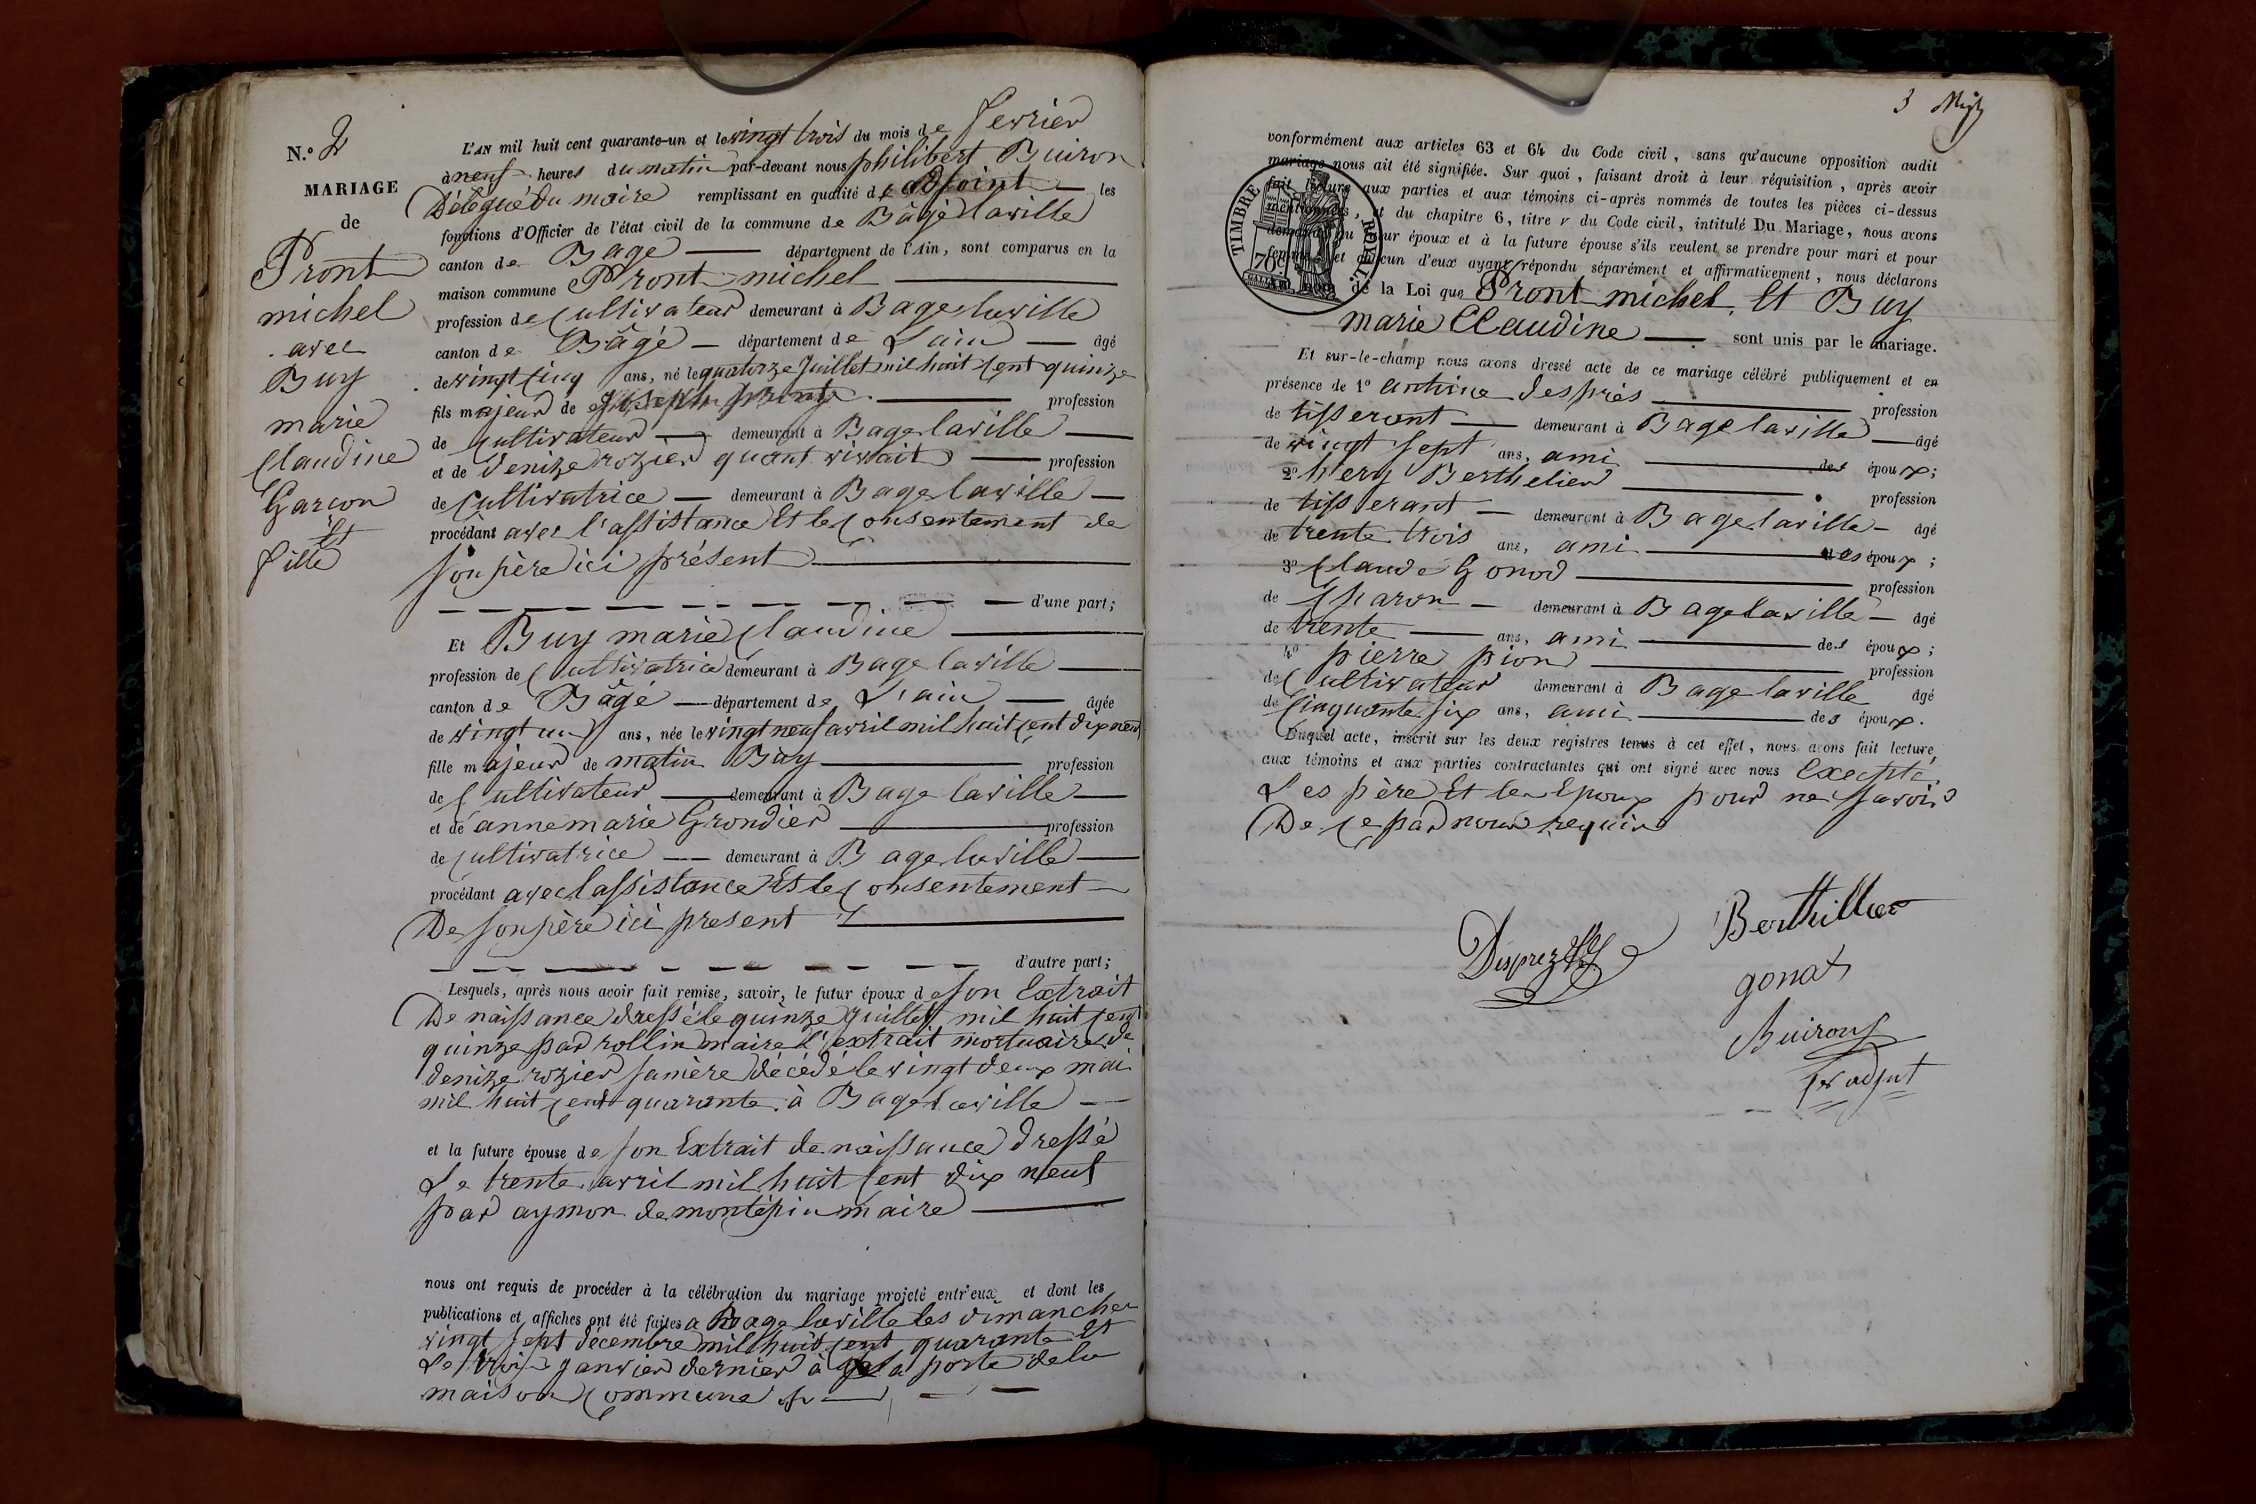 N.° 2
MARIAGE
de
Pront
michel
avec
Buy
marie
Claudine
Garcon
Et
fille
L'AN mil huit cent quarante-un et le vingt trois du mois de fevrier
à neuf heures du matin par-devant nous philibert Buiron
Délégué du maire remplissant en qualité d'adjoint les
fonctions d'Officier de l'état civil de la commune de Bâgé laville
canton de Bagé département de l'Ain, sont comparus en la
maison commune Pront michel
profession de Cultivateur demeurant à Bage laville
canton de Bâgé département de L'ain âgé
de vingt Cinq ans, né le quatorze Juillet mil huit Cent quinze
fils majeur de joseph pront profession
de Cultivateur demeurant à Bage laville
et de denize rozier quant vivait profession
de Cultivatrice demeurant à Bage laville
procédant avec l'assistance Et le Consentement de
son père ici présent
d'une part;
Et Buy marie Claudine
profession de Cultivatrice demeurant à Bage laville
canton de Bâgé département de L'ain âgée
de vingt un ans, née le vingt neuf avril mil huit Cent dix neuf
fille majeur de matin Buy profession
de Cultivateur demeurant à Bage laville
et de anne marie Grondier profession
de Cultivatrice demeurant à Bage laville
procédant avec lassistance Et le Consentement
De son père ici present
d'autre part;
Lesquels, après nous avoir fait remise, savoir, le futur époux de son Extrait
De naissance dressé le quinze juillet mil huit Cent
quinze par rollin maire L'extrait mortuaire de
denize rozier sa mère décédé le vingt deux mai
mil huit Cent quarante à Bage laville
et la future épouse de son Extrait de naissance dressé
Le trente avril mil huit Cent dix neuf
par aymon de montépin maire
nous ont requis de procéder à la célébration du mariage projeté entr'eux et dont les
publications et affiches ont été faites a Bage laville les dimanches
vingt sept décembre mil huit Cent quarante Et
Le trois janvier dernier à la porte de la
maison Commune
3
conformément aux articles 63 et 64 du Code civil, sans qu'aucune opposition audit
mariage nous ait été signifiée. Sur quoi, faisant droit à leur réquisition, après avoir
fait lecture aux parties et aux témoins ci-après nommés de toutes les pièces ci-dessus
mentionnées, et du chapitre 6, titre v du Code civil, intitulé Du Mariage, nous avons
demandé au futur époux et à la future épouse s'ils veulent se prendre pour mari et pour
femme; et chacun d'eux ayant répondu séparément et affirmativement, nous déclarons
au nom de la Loi que Pront michel Et Buy
TIMBRE ROYAL
70c
marie Claudine sont unis par le mariage.
Et sur-le-champ nous avons dressé acte de ce mariage célébré publiquement et en
présence de 1° antoine després profession
de tisseront demeurant à Bage laville âgé
de vingt sept ans, ami des époux;
2° hery Berthelier profession
de tisserant demeurant à Bage laville âgé
de trente trois ans, ami des époux;
3° Claude Gonod profession
de Charon demeurant à Bage laville âgé
de trente ans, ami des époux;
4° pierre pion profession
de Cultivateur demeurant à Bage laville âgé
de Cinquante six ans, ami des époux.
Duquel acte, inscrit sur les deux registres tenus à cet effet, nous avons fait lecture
aux témoins et aux parties contractantes qui ont signé avec nous Excepté
Les père Et les Epoux pour ne savoir
De Ce par nous requis
Berthillier
Desprez
gonat
Buiron
1er adjut